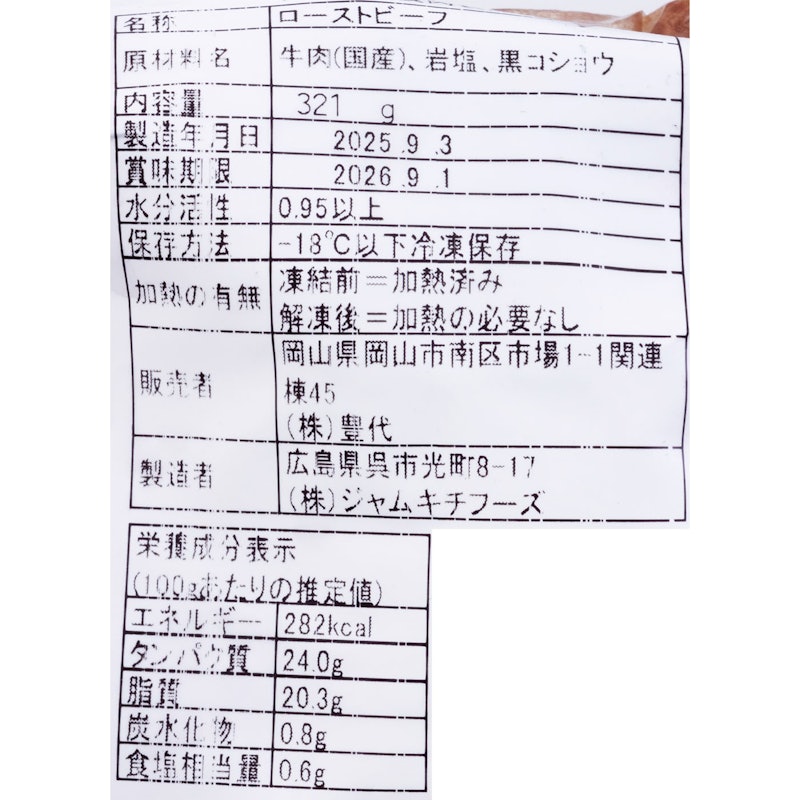 名称 ローストビーフ
原材料名 牛肉(国産)、岩塩、黒コショウ
内容量 321 g
製造年月日 2025.9.3
賞味期限 2026.9.1
水分活性 0.95以上
保存方法 -18℃以下冷凍保存
加熱の有無 凍結前=加熱済み
解凍後=加熱の必要なし
販売者 岡山県岡山市南区市場1-1関連
棟45
(株)豊代
製造者 広島県呉市光町8-17
(株)ジャムキチフーズ
栄養成分表示
(100gあたりの推定値)
エネルギー 282kcal
タンパク質 24.0g
脂質 20.3g
炭水化物 0.8g
食塩相当量 0.6g